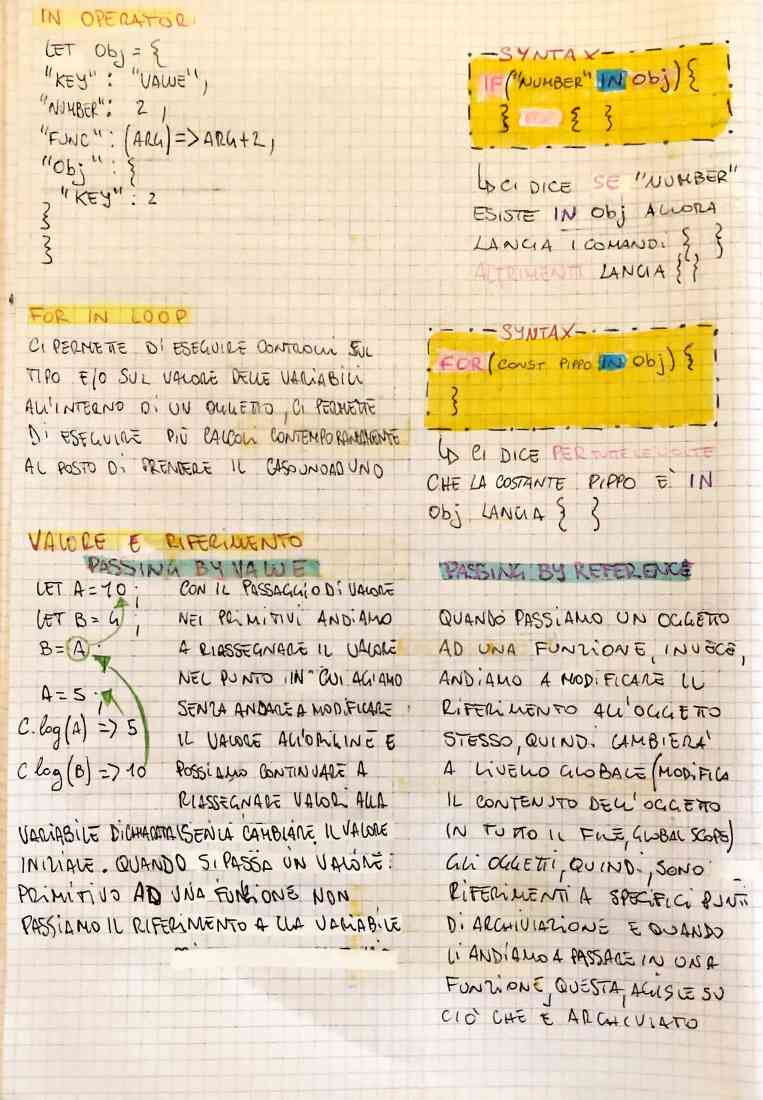 IN OPERATOR
LET Obj = {
"KEY" : "VALUE",
"NUMBER": 2 ,
"FUNC" : (ARG)=>ARG+2,
"Obj" : {
"KEY": 2
}
}
SYNTAX
IF("NUMBER" IN Obj){
} { }
↳ CI DICE SE "NUMBER"
ESISTE IN Obj ALLORA
LANCIA I COMANDI { }
ALTRIMENTI LANCIA { }
FOR IN LOOP
CI PERMETTE DI ESEGUIRE CONTROLLI SUL
TIPO E/O SUL VALORE DELLE VARIABILI
ALL'INTERNO DI UN OGGETTO, CI PERMETTE
DI ESEGUIRE PIÙ CALCOLI CONTEMPORANEAMENTE
AL POSTO DI PRENDERE IL CASO UNO AD UNO
SYNTAX
FOR(CONST PIPPO IN Obj) {
}
↳ CI DICE PER TUTTE LE VOLTE
CHE LA COSTANTE PIPPO E' IN
Obj LANCIA { }
VALORE E RIFERIMENTO
PASSING BY VALUE
LET A = 10 ;
LET B = 4 ;
B = A ;
A = 5 ;
C.log(A) => 5
C log(B) => 10
CON IL PASSAGGIO DI VALORE
NEI PRIMITIVI ANDIAMO
A RIASSEGNARE IL VALORE
NEL PUNTO IN CUI AGIAMO
SENZA ANDARE A MODIFICARE
IL VALORE ALL'ORIGINE E
POSSIAMO CONTINUARE A
RIASSEGNARE VALORI ALLA
VARIABILE DICHIARATA SENZA CAMBIARE IL VALORE
INIZIALE. QUANDO SI PASSA UN VALORE
PRIMITIVO AD UNA FUNZIONE NON
PASSIAMO IL RIFERIMENTO ALLA VARIABILE
PASSING BY REFERENCE
QUANDO PASSIAMO UN OGGETTO
AD UNA FUNZIONE, INVECE,
ANDIAMO A MODIFICARE IL
RIFERIMENTO ALL'OGGETTO
STESSO, QUINDI CAMBIERA'
A LIVELLO GLOBALE (MODIFICA
IL CONTENUTO DELL'OGGETTO
IN TUTTO IL FILE, GLOBAL SCOPE)
GLI OGGETTI, QUINDI, SONO
RIFERIMENTI A SPECIFICI PUNTI
DI ARCHIVIAZIONE E QUANDO
LI ANDIAMO A PASSARE IN UNA
FUNZIONE, QUESTA, AGISCE SU
CIÒ CHE E ARCHIVIATO